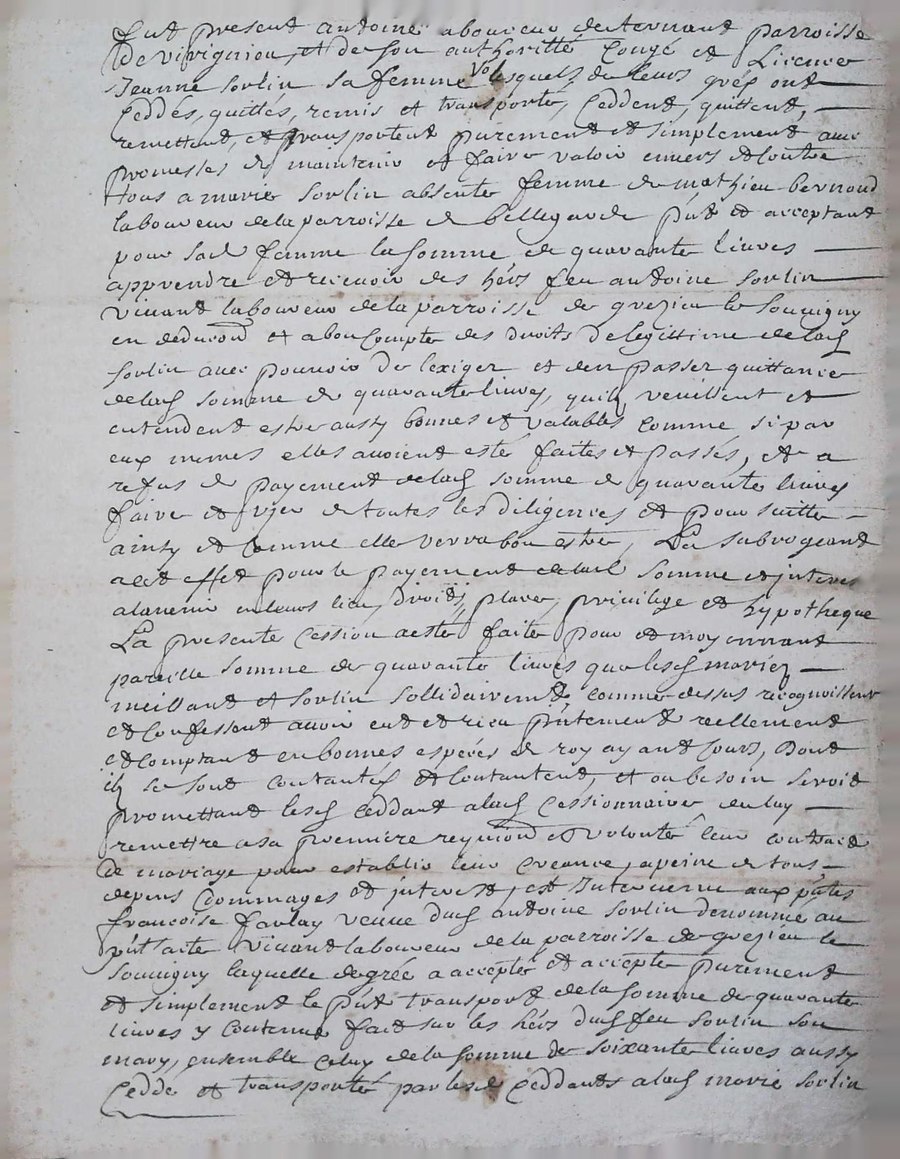 fut present antoine labouveur de ternand parroisse
de virignieu, et de son authoritté Congé et Licence
Jeanne Sorlin sa femme lesquels de leurs grés ont
Ceddés, quittés, remis et transporté, Ceddent, quittent,
remettent, et transportent purement et simplement avec
promesses de maintenir et faire valoir envers et Contre
tous a marie Sorlin absente femme de mathieu bernand
laboureur de la parroisse de bellegarde pnt et acceptant
pour sad femme la somme de quarante livres
apprendre et recevoir des hérs feu antoine Sorlin
vivant laboureur de la parroisse de grezieu le Souvigny
en deduon et a bon Compte des droits de legittime de lad
Sorlin avec pouvoir de lexiger et den passer quittance
de lad somme de quarante livres, quils veuillent et
entendent estre aussy bonnes et valables comme si par
eux memes elles avoient esté faites et passés, et a
refus de payement de lad somme de quarante livres
faire et user de toutes les diligences et poursuitte
ainsy et Comme elle verra bon estre, La subrogeant
a cet effet pour le payement de lad somme et interes
alavenir en leurs lieu, droits, place, privilege et hypotheque
La presente Cession a esté faite pour et moyennant
pareille somme de quarante livres que lesd mariez
meillant et Sorlin sollidairemt comme dessus recognoissent
et Confessent avoir eut et rèceu pntement reellement
et Comptant en bonnes espéces de roy ayant Cours, Dont
ils se sont contantés et Contantent, et ou besoin seroit
promettant lesd Ceddant a lad Cessionnaire de luy
remettre a sa premiere requion et volonté leur contract
de mariage pour establir leur Creance, a peine de tous
depens dommages et interest, est Intervenue aux pntes
françoise faulay veuve dud antoine Sorlin denommé au
pnt acte vivant laboureur de la parroisse de grezieu le
Souvigny laquelle de gréé a accepté et accepte purement
et simplement le pnt transport de la somme de quarante
livres y Contenue fait sur les hérs dud feu Sorlin son
mary, ensemble Celuy de la somme de soixante livres aussy
Cedde et transporté par lesd Ceddants a lad marie Sorlin